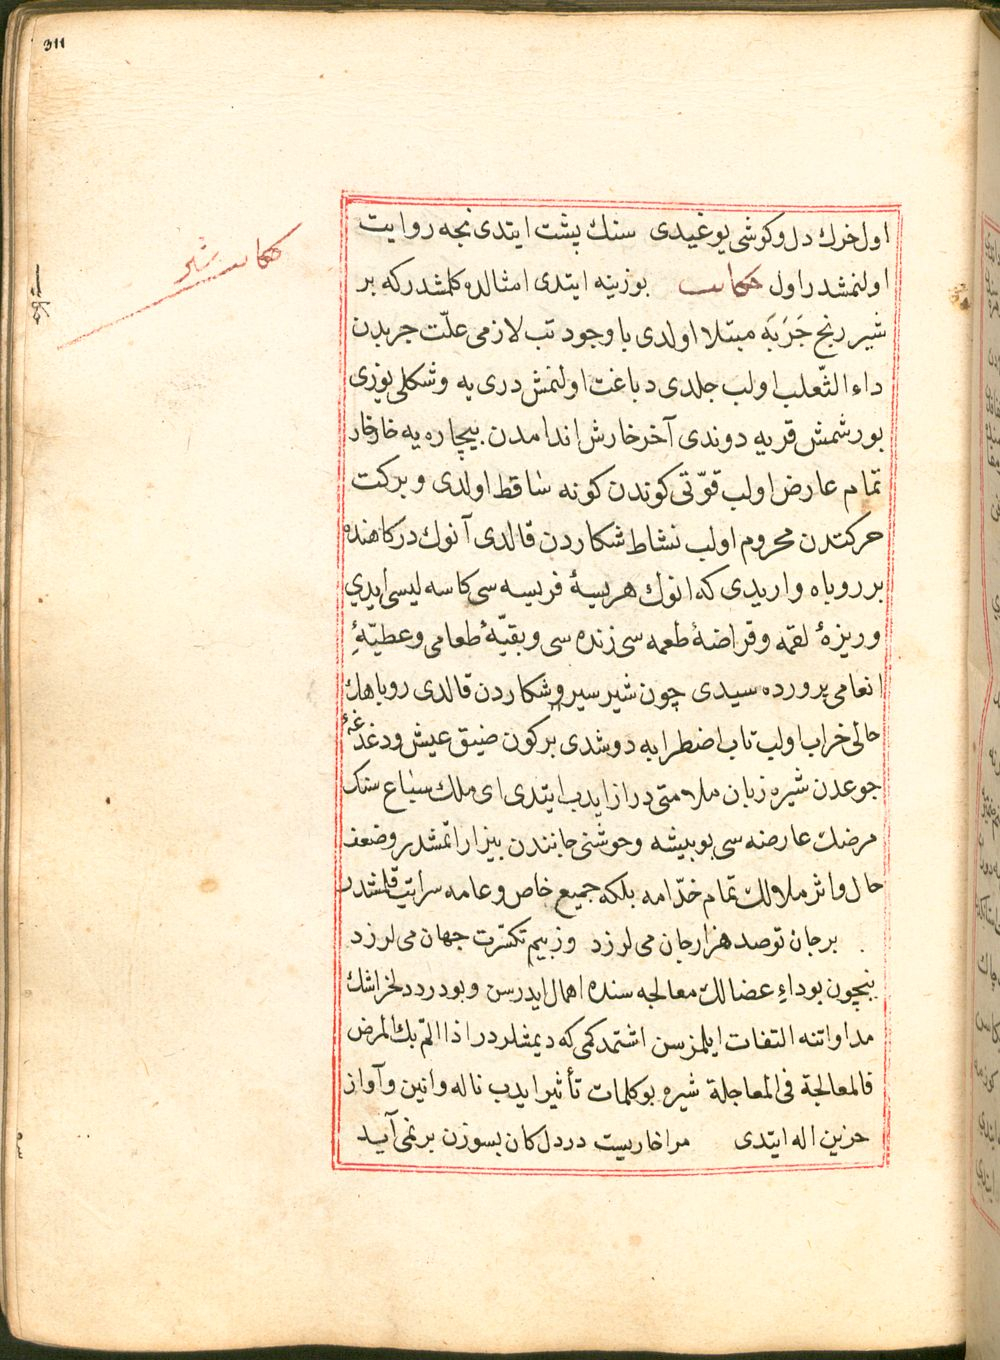 311
حكايت شير
اول خرك دل و كوشى يوغيدى سنك پشت ايتدى نجه روايت
اولنمشدر اول حكايت بوزينه ايتدى امثالده كلمشدركه بر
شير رنج جَرَبَه مبتلا اولدى با وجود تب لازمى علّت جربدن
داء الثّعلب اولب جلدى دباغت اولنمش درى يه وشكلى يوزى
بورشمش قربه دوندى آخر خارش اندامدن بيچاره يه خارخار
تمام عارض اولب قوّتى كوندن كونه ساقط اولدى و بركت
حركتدن محروم اولب نشاط شكاردن قالدى آنوك دركاهنده
بر روباه واريدى كه انوك هريسهٔ فريسه سى كاسه ليسى ايدي
و ريزهٔ لقمه وقراضهٔ طعمه سى زنده سى وبقيّهٔ طعامى وعطيّهٔ
انعامى پرورده سيدى چون شير سير وشكاردن قالدى روباهك
حالى خراب اولب تاب اضطرابه دوشدى بركون ضيق عيش ودغدغهٔ
جوعدن شيره زبان ملامتى دراز ايدب ايتدى اى ملك سباع سنك
مرضك عارضه سى بو بيشه وحوشنى جانندن بيزار اتمشدر وضعف
حال واثر ملالك تمام خدّامه بلكه جميع خاص وعامه سرايت قلمشدر
برجان تو صد هزار جان مى لرزد وز بيم تكسّرت جهان مى لرزد
نيچون بو داءِ عضالك معالجه سنده اهمال ايدرسن وبو درد دلخراشك
مداواتنه التفات ايلمزسن اشتمدكمى كه ديمشلردر اذا المّ بك المرض
فالمعالجة فى المعاجلة شيره بو كلمات تأثير ايدب ناله وانين وآواز
حزين اله ايتدى مرا خاريست در دل كان بسوزن بر نمى آيد